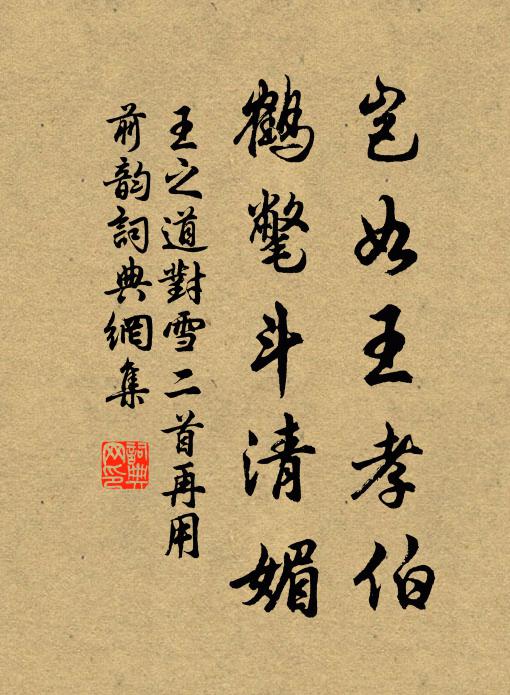 岂如王孝伯
鹤氅斗清媚
王之道對雪二首再用
前韵詞典網集
詞典网印